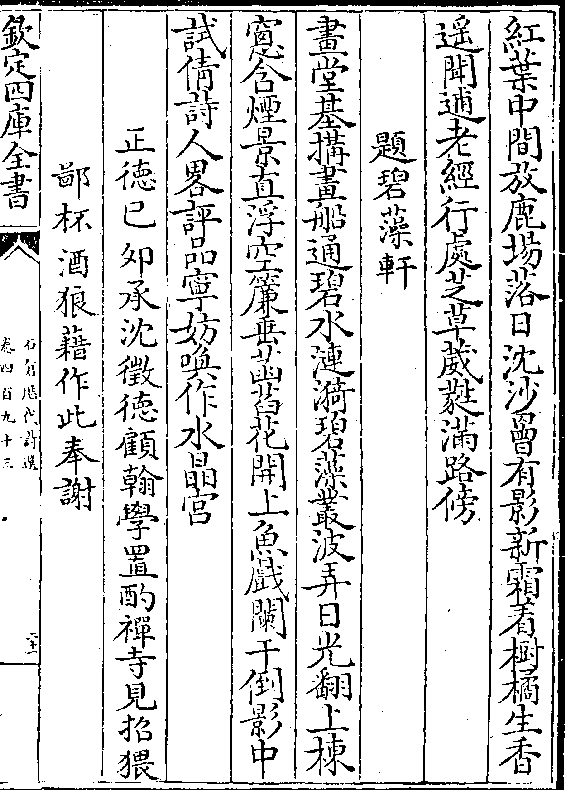 紅葉中間放鹿場落日沈沙曽有影新霜着樹橘生香
遥聞逋老經行處芝草葳蕤滿路傍
題碧藻軒
畫堂基搆畫船通碧水漣漪碧藻叢波弄日光翻上棟
窻含煙景直浮空簾垂菡萏花開上魚戲闌干倒影中
試倩詩人畧評品寧妨喚作水晶宫
正德已夘承沈徵德顧翰學置酌禪寺見招猥
鄙杯酒狼藉作此奉謝
欽定四庫全書
石倉歷代詩選
卷四百九十三
二十二